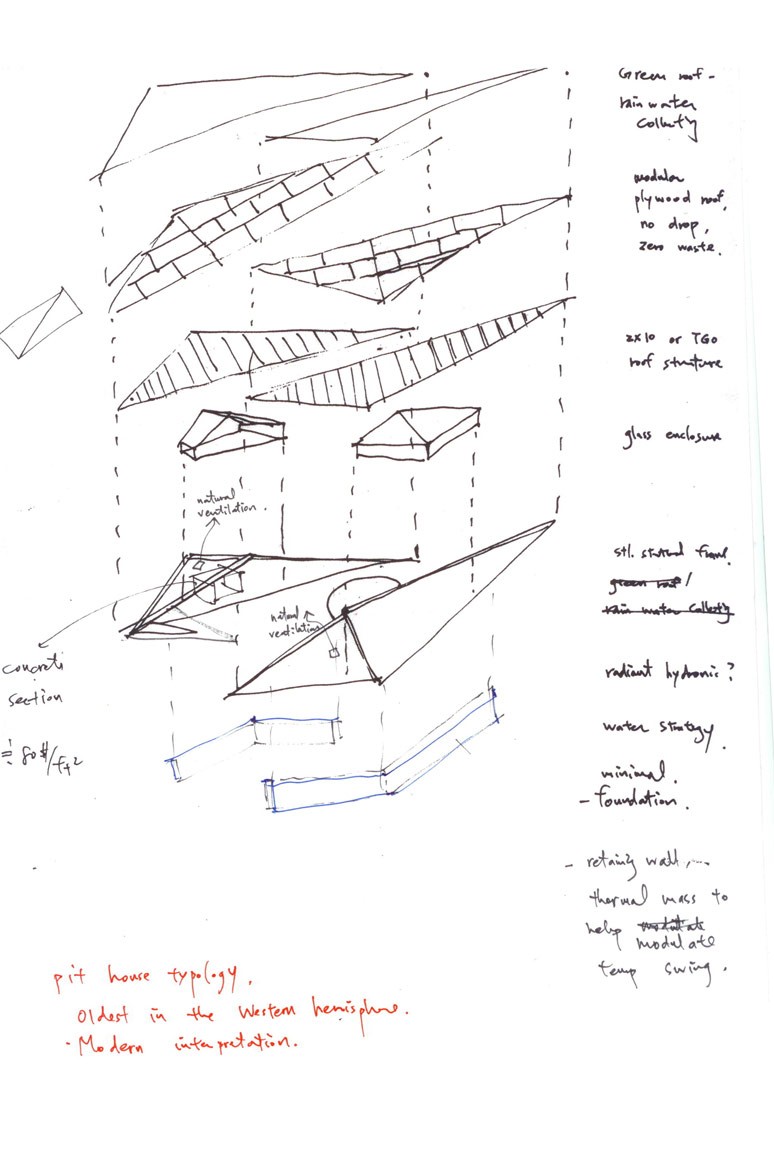 Green roof -
rain water
collecty
modular
plywood roof,
no drop,
zero waste.
2x10 or TGO
roof structure
glass enclosure
natural
ventilation.
stl. frame.
green roof /
rain water collecty
natural
ventilation
concrete
section
radiant hydronic ?
water strategy.
≐ 80 $/ft2
minimal.
- foundation.
- retaing wall, ...
thermal mass to
help modulate
modulate
temp swing.
pit house typology.
Oldest in the Western hemisphere.
· Modern interpretation.